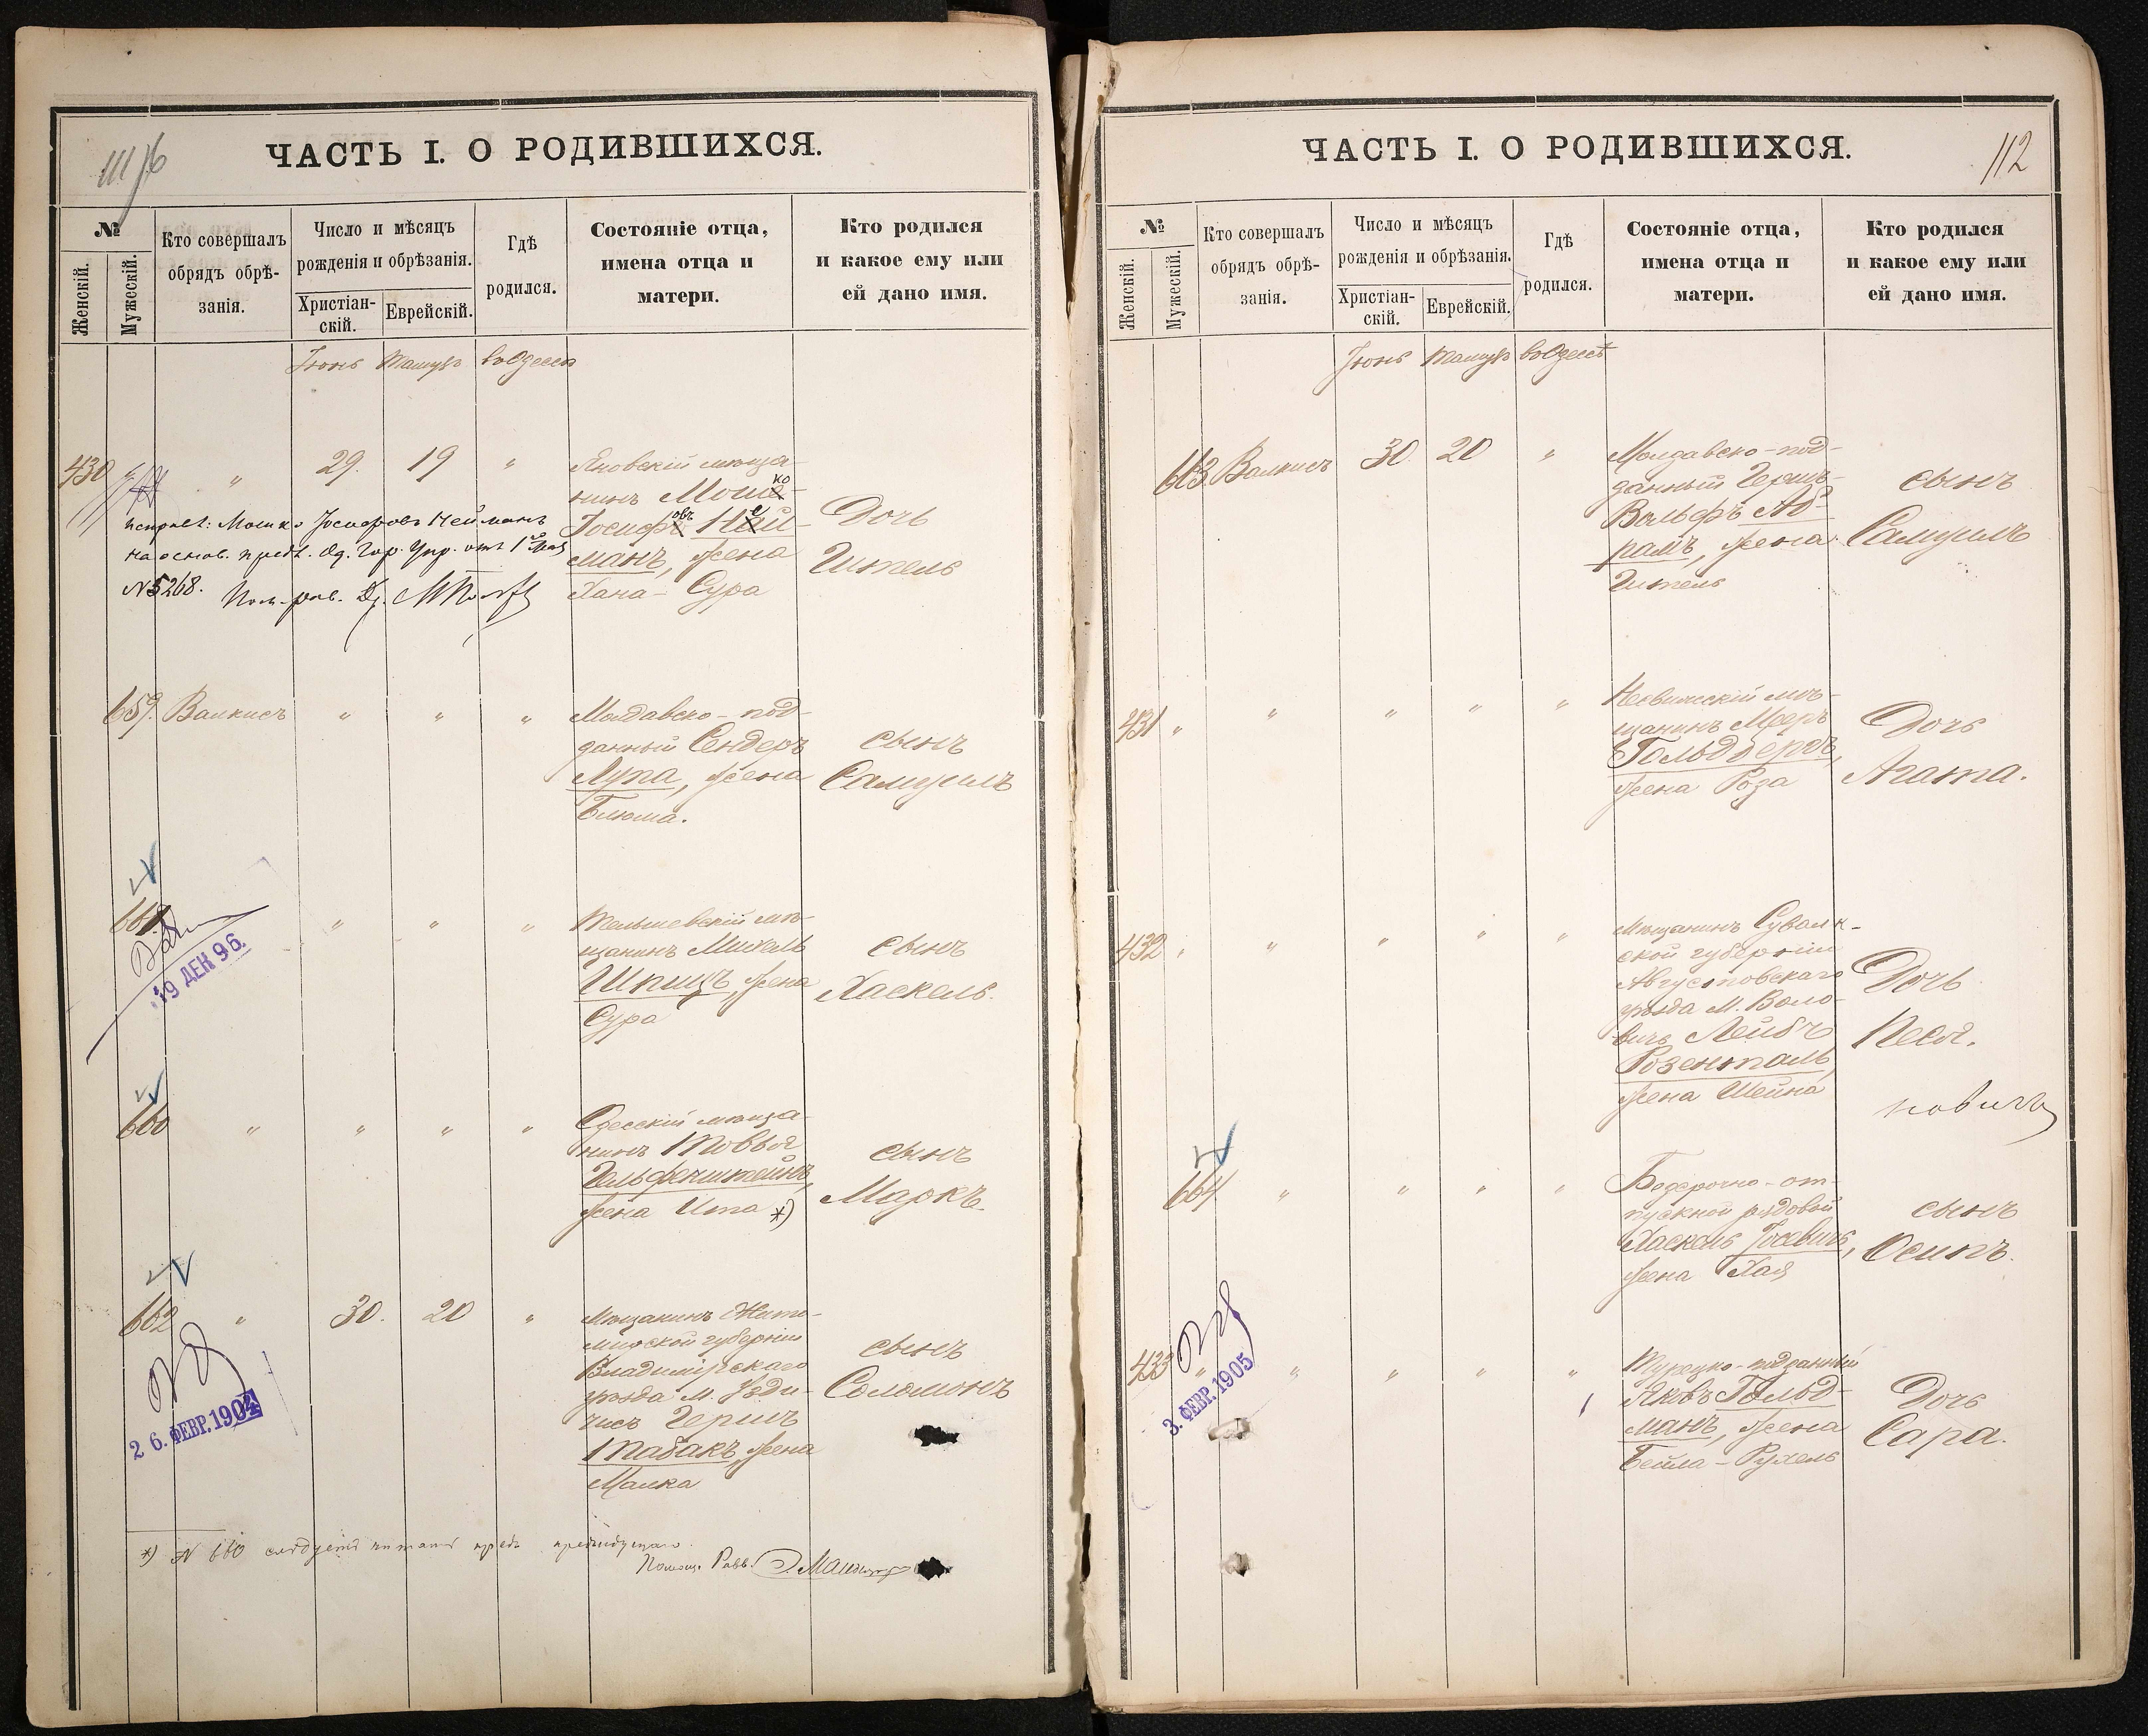 ЧАСТЬ I. О РОДИВШИХСЯ.
№
Женскій.
Мужескій.
Кто совершалъ
обрядъ обрѣ-
занія.
Число и мѣсяцъ
рожденія и обрѣзанія.
Христіан-
скій.
Еврейскій.
Гдѣ
родился.
Состояніе отца,
имена отца и
матери.
Кто родился
и какое ему или
ей дано имя.
Іюнь Тамузъ въ Одессѣ
430 " 29. 19 "
Яновскій мѣща-
нинъ Мошко
Іосифовъ Ней-
манъ, жена
Хана-Сура
Дочь
Гитель
исправл: Мошко Іосифовъ Нейманъ
на основ. предп. Од. Гор. Упр. отъ 1 Мая
№ 5268. Пом. рав.
659. Валкисъ " " "
Молдавско-под-
данный Сендеръ
Лупа, жена
Блюма.
сынъ
Самуилъ
661. " " "
Тельшевскій мѣ-
щанинъ Михель
Шпицъ, жена
Сура
сынъ
Хаскель.
19 ДЕК 96.
660 " " " "
Одесскій мѣща-
нинъ Товья
Гельфенштейнъ,
жена Ита *)
сынъ
Маркъ.
662 " 30. 20 "
Мѣщанинъ Жито-
мирской губерніи
Владимірскаго
уѣзда м.
Гершъ
Табакъ, жена
Малка
сынъ
Соломонъ
26. ФЕВР. 1904
*) № 660 слѣдуетъ читать предъ предыдущаго.
Помощ. Равв.
ЧАСТЬ I. О РОДИВШИХСЯ.
112
№
Женскій.
Мужескій.
Кто совершалъ
обрядъ обрѣ-
занія.
Число и мѣсяцъ
рожденія и обрѣзанія.
Христіан-
скій.
Еврейскій.
Гдѣ
родился.
Состояніе отца,
имена отца и
матери.
Кто родился
и какое ему или
ей дано имя.
Іюнь Тамузъ въ Одессѣ
663. Валкисъ 30. 20 "
Молдавско-под-
данный Гершъ-
Вольфъ Аб-
рамъ, жена
Гитель
сынъ
Самуилъ
431 " " " " "
Несвижскій мѣ-
щанинъ Мееръ
Гольдбергъ,
жена Роза
Дочь
Агата.
432 " " " " "
Мѣщанинъ Сувалк-
ской губерніи
Августовскаго
уѣзда м. Воло-
вичъ Лейбъ
Розенталь,
жена Шейна
Дочь
Песя.
новичъ
664 " " " "
Безсрочно-от-
пускной рядовой
Хаскель Іосевичъ,
жена Хая
сынъ
Осипъ.
433 " " " " "
Турецко-подданный
Яковъ Гольд-
манъ, жена
Бейла-Рухель
Дочь
Сара.
3. ФЕВР. 1905